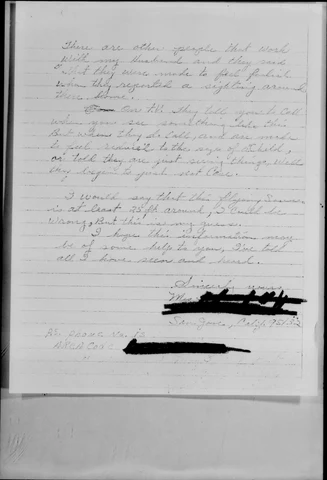 There are other people that work
with my Husband and they said
that they were made to feel foolish
when they reported a sighting around
there home.
On the T.V. they tell you to call
when you see something like this
But when they do call, and are made
to feel
or told they are just seeing things, what
they began to just not care.
I would say that this flying saucer
is at least 25 ft around, I could be
wrong, But this is my guess.
I hope this information may
be of some help to you, I've told
all I have seen and heard.
Sincerely yours
Mrs.
San Jose, Calif.
Phone No. is
Area Code